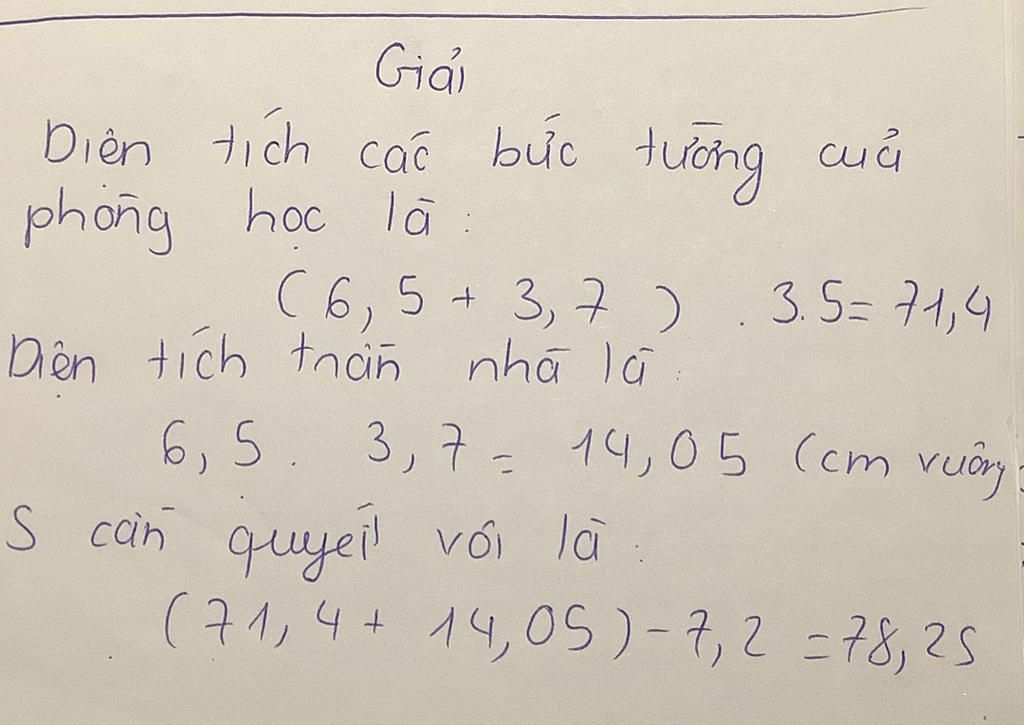 Giải
Diện tích các bức tường cuả
phòng học là :
( 6, 5 + 3, 7 ) . 3.5= 71,4
Diện tích trần nhà là :
6, 5 . 3, 7 = 14, 05 (cm vuông
S cần quyét vôi là :
(71, 4 + 14,05) - 7,2 = 78,25